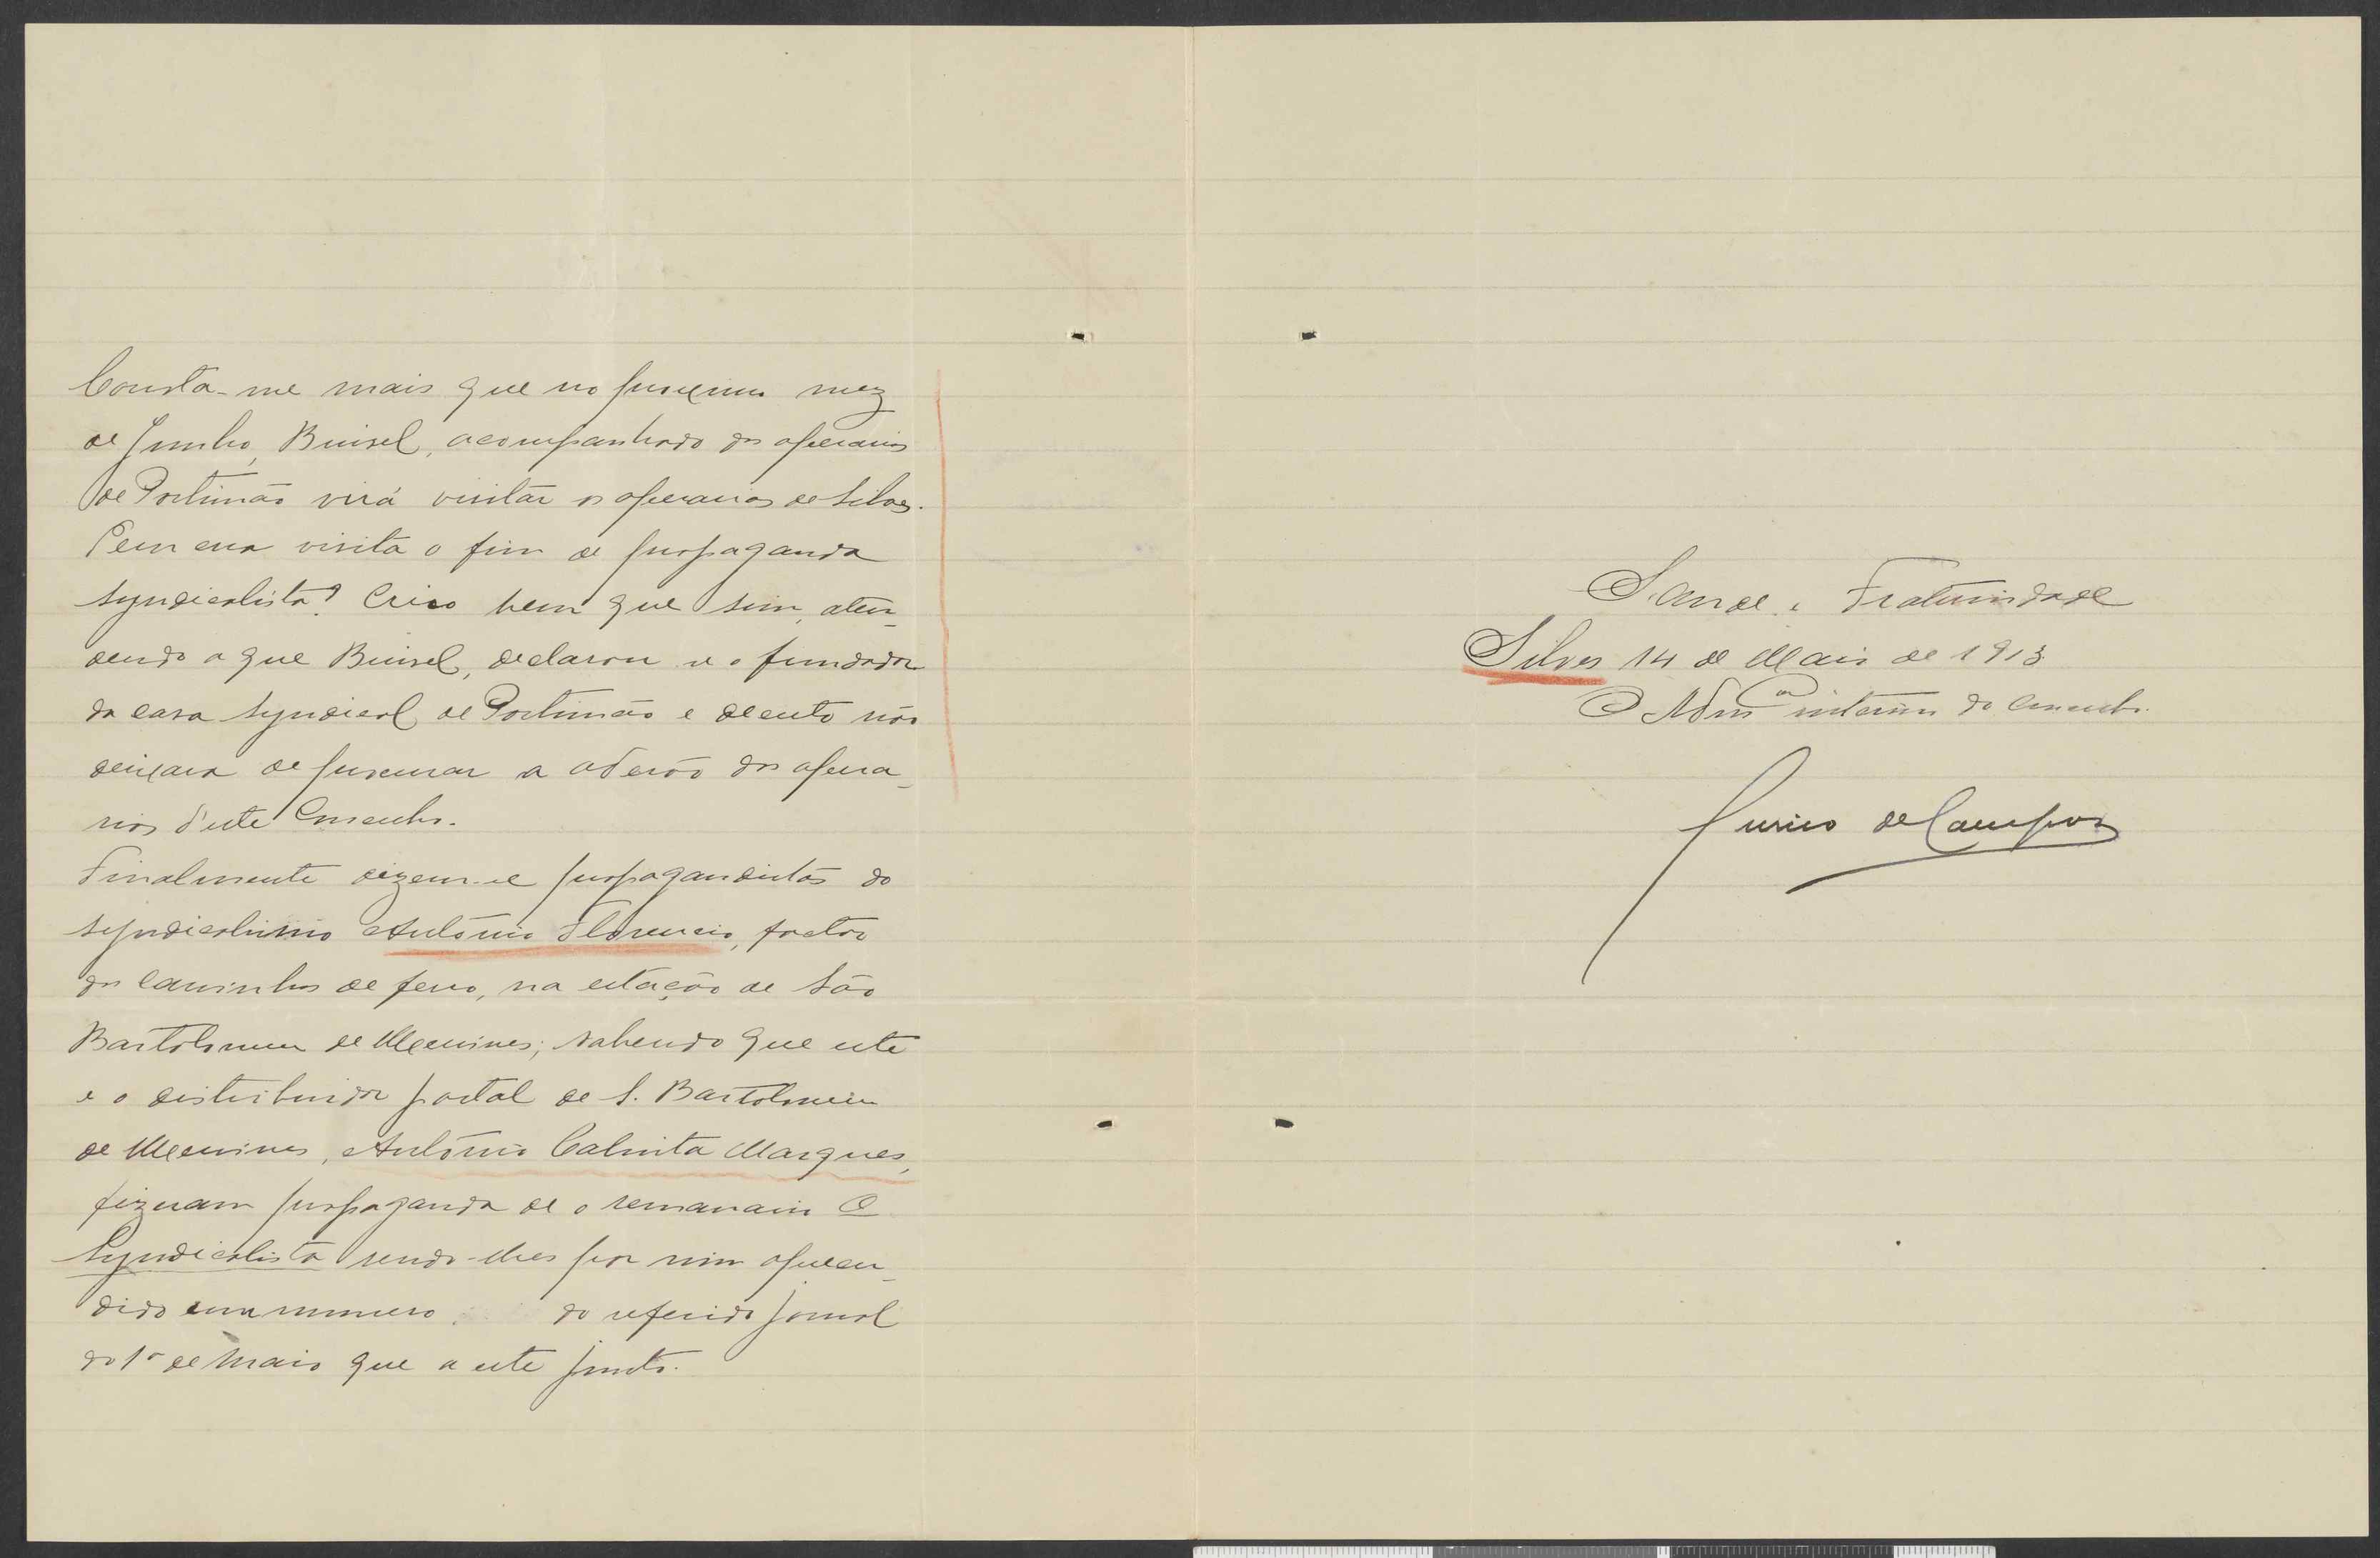 Consta-me mais que no proximo mez
de Junho, Buisel, acompanhado dos operarios
de Portimão virá visitar os operarios de Silves.
Tem essa visita o fim de propaganda
syndicalista? Creio bem que sim, aten-
dendo a que Buisel, declarou-se o fundador
da casa syndical de Portimão e decerto não
deixará de procurar a adesão dos opera-
rios d'este Concelho.
Finalmente dizem-se propagandistas do
syndicalismo António Florencio, factor
dos caminhos de ferro, na estação de São
Bartolomeu de Messines; sabendo que este
e o distribuidor postal de S. Bartolomeu
de Messines, António Calvinta Marques,
fizeram propaganda de o semanario O
Syndicalista sendo-lhes por mim apreen-
dido um numero do referido jornal
do 1º de Maio que a este junto.
Saude e Fraternidade
Silves 14 de Maio de 1913
O Admor interino do Concelho.
Eurico de Campos